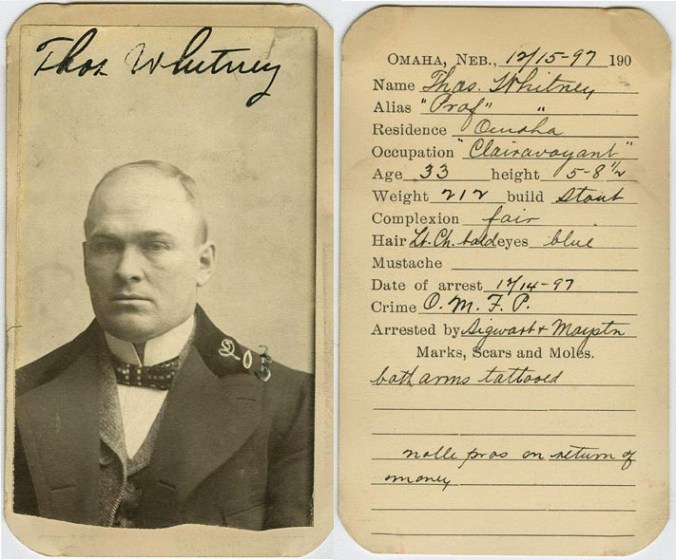 Thos. Whitney
203
OMAHA, NEB., 12/15-97 190
Name Thos. Whitney
Alias "Prof" "
Residence Omaha
Occupation "Clairavoyant"
Age 33 height 5-8 1/2
Weight 212 build Stout
Complexion fair
Hair Lt. Ch. bald eyes blue
Mustache
Date of arrest 12/14-97
Crime O. M. F. P.
Arrested by &
Marks, Scars and Moles.
both arms tattooed
nolle pros on return of
money